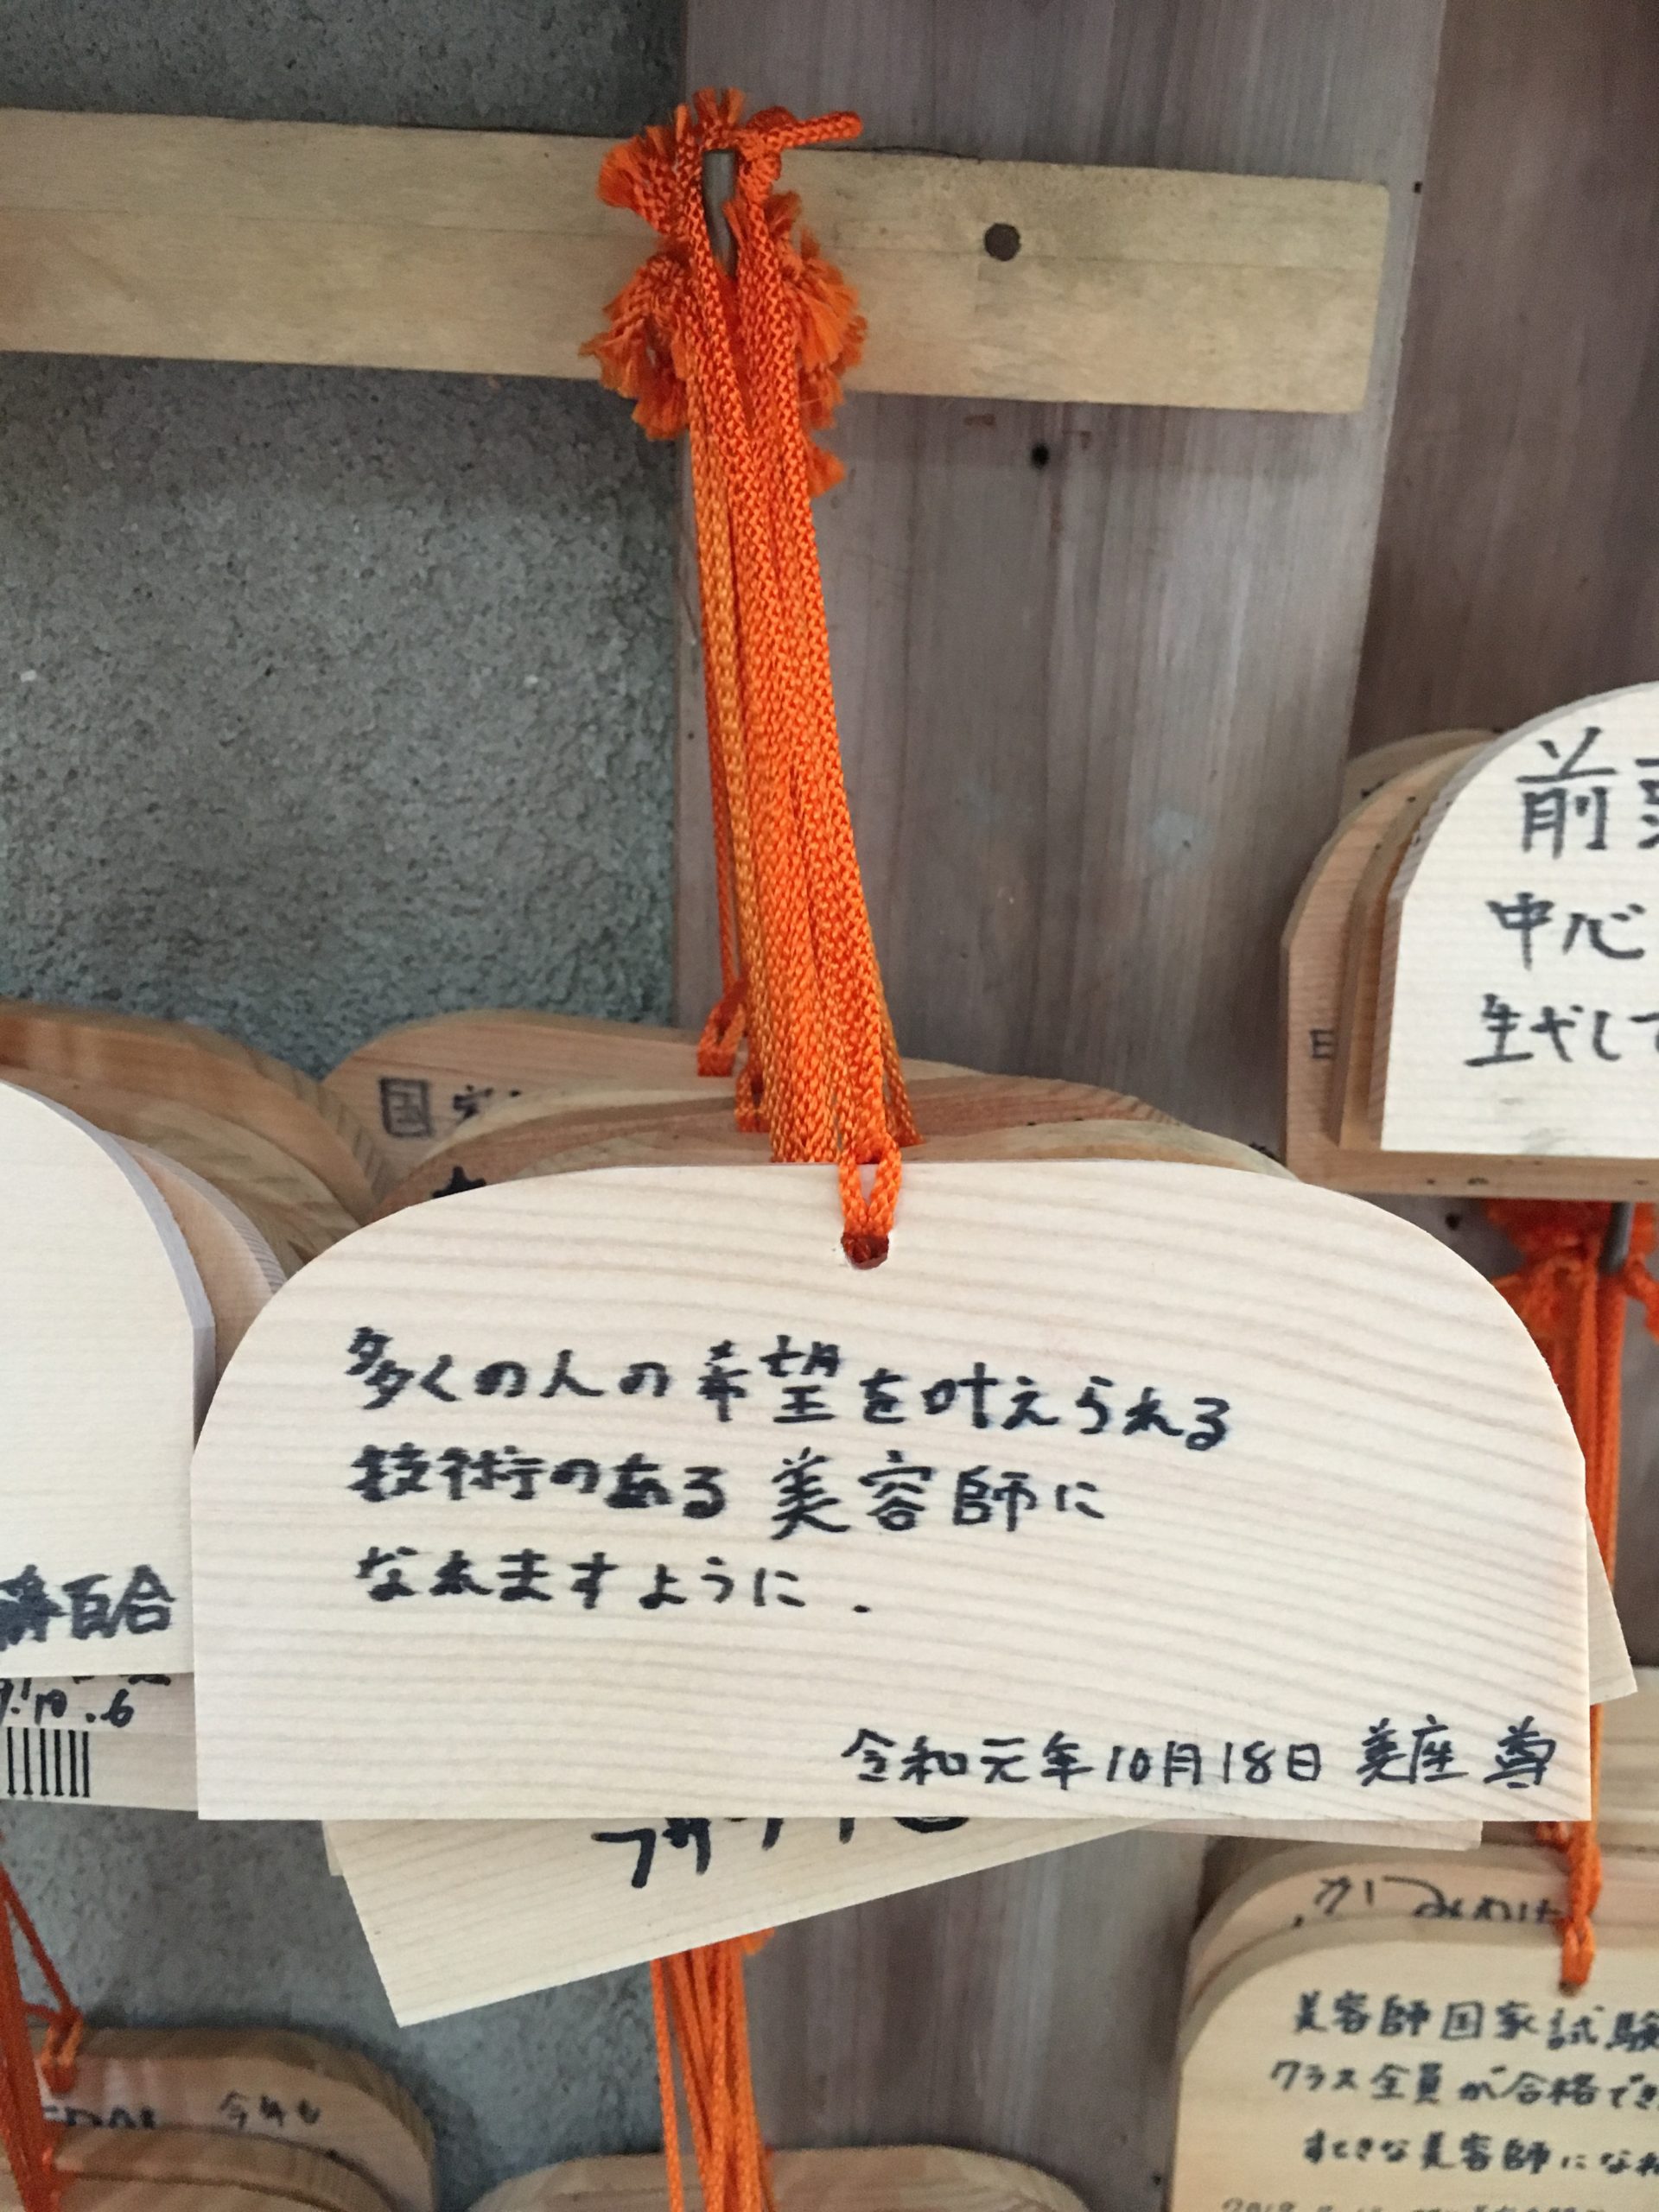 前
中心
生やして
日
国
多くの人の希望を叶えられる
技術のある美容師に
なれますように.
令和元年10月18日 美座 尊
百合
10.6
美容師国家試験
クラス全員が合格でき
すてきな美容師になれ
今年も